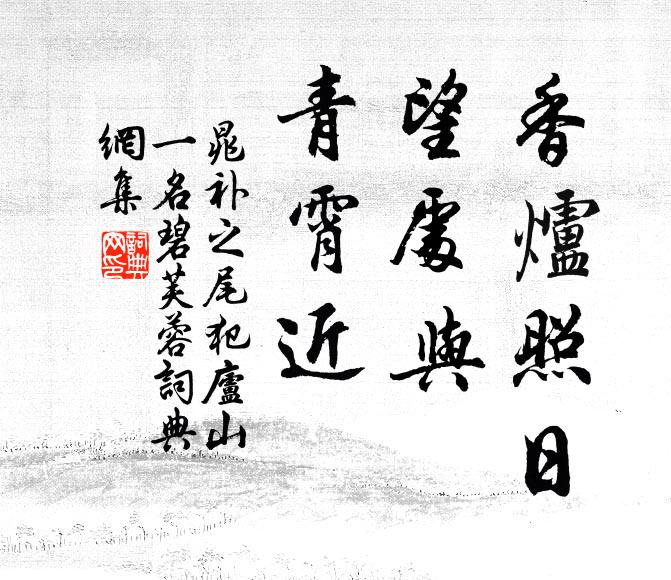 香爐照日
望處與
青霄近
晁补之尾犯廬山
一名碧芙蓉詞典
網集
詞典
网印